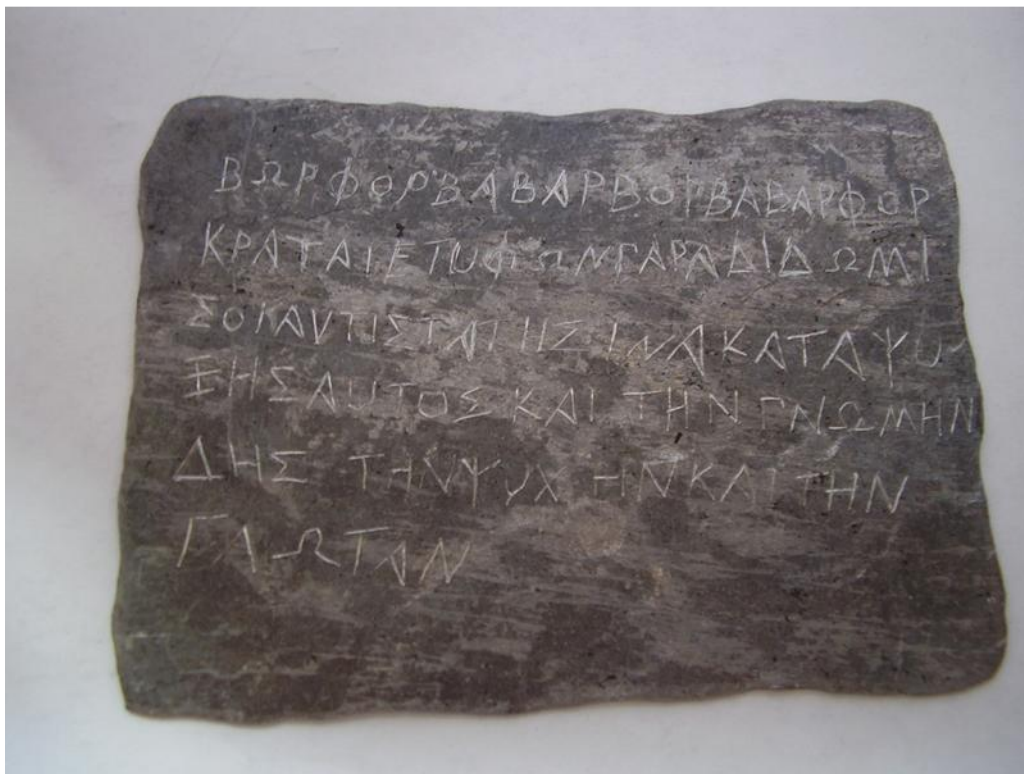 ΒΩΡΦΟΡΒΑΒΑΡΒΟΡΒΑΒΑΡΦΟΡ
ΚΡΑΤΑΙΕΤΥΦΩΝΠΑΡΑΔΙΔΩΜΙ
ΣΟΙΑΝΤΙΣΤΑΤΗΣΙΝΑΚΑΤΑΨΥ
ΞΗΣΑΥΤΟΣΚΑΙ ΤΗΝ ΓΝΩΜΗΝ
ΔΗΣ ΤΗΝΨΥΧΗΝΚΑΙ ΤΗΝ
ΓΛΩΤΑΝ